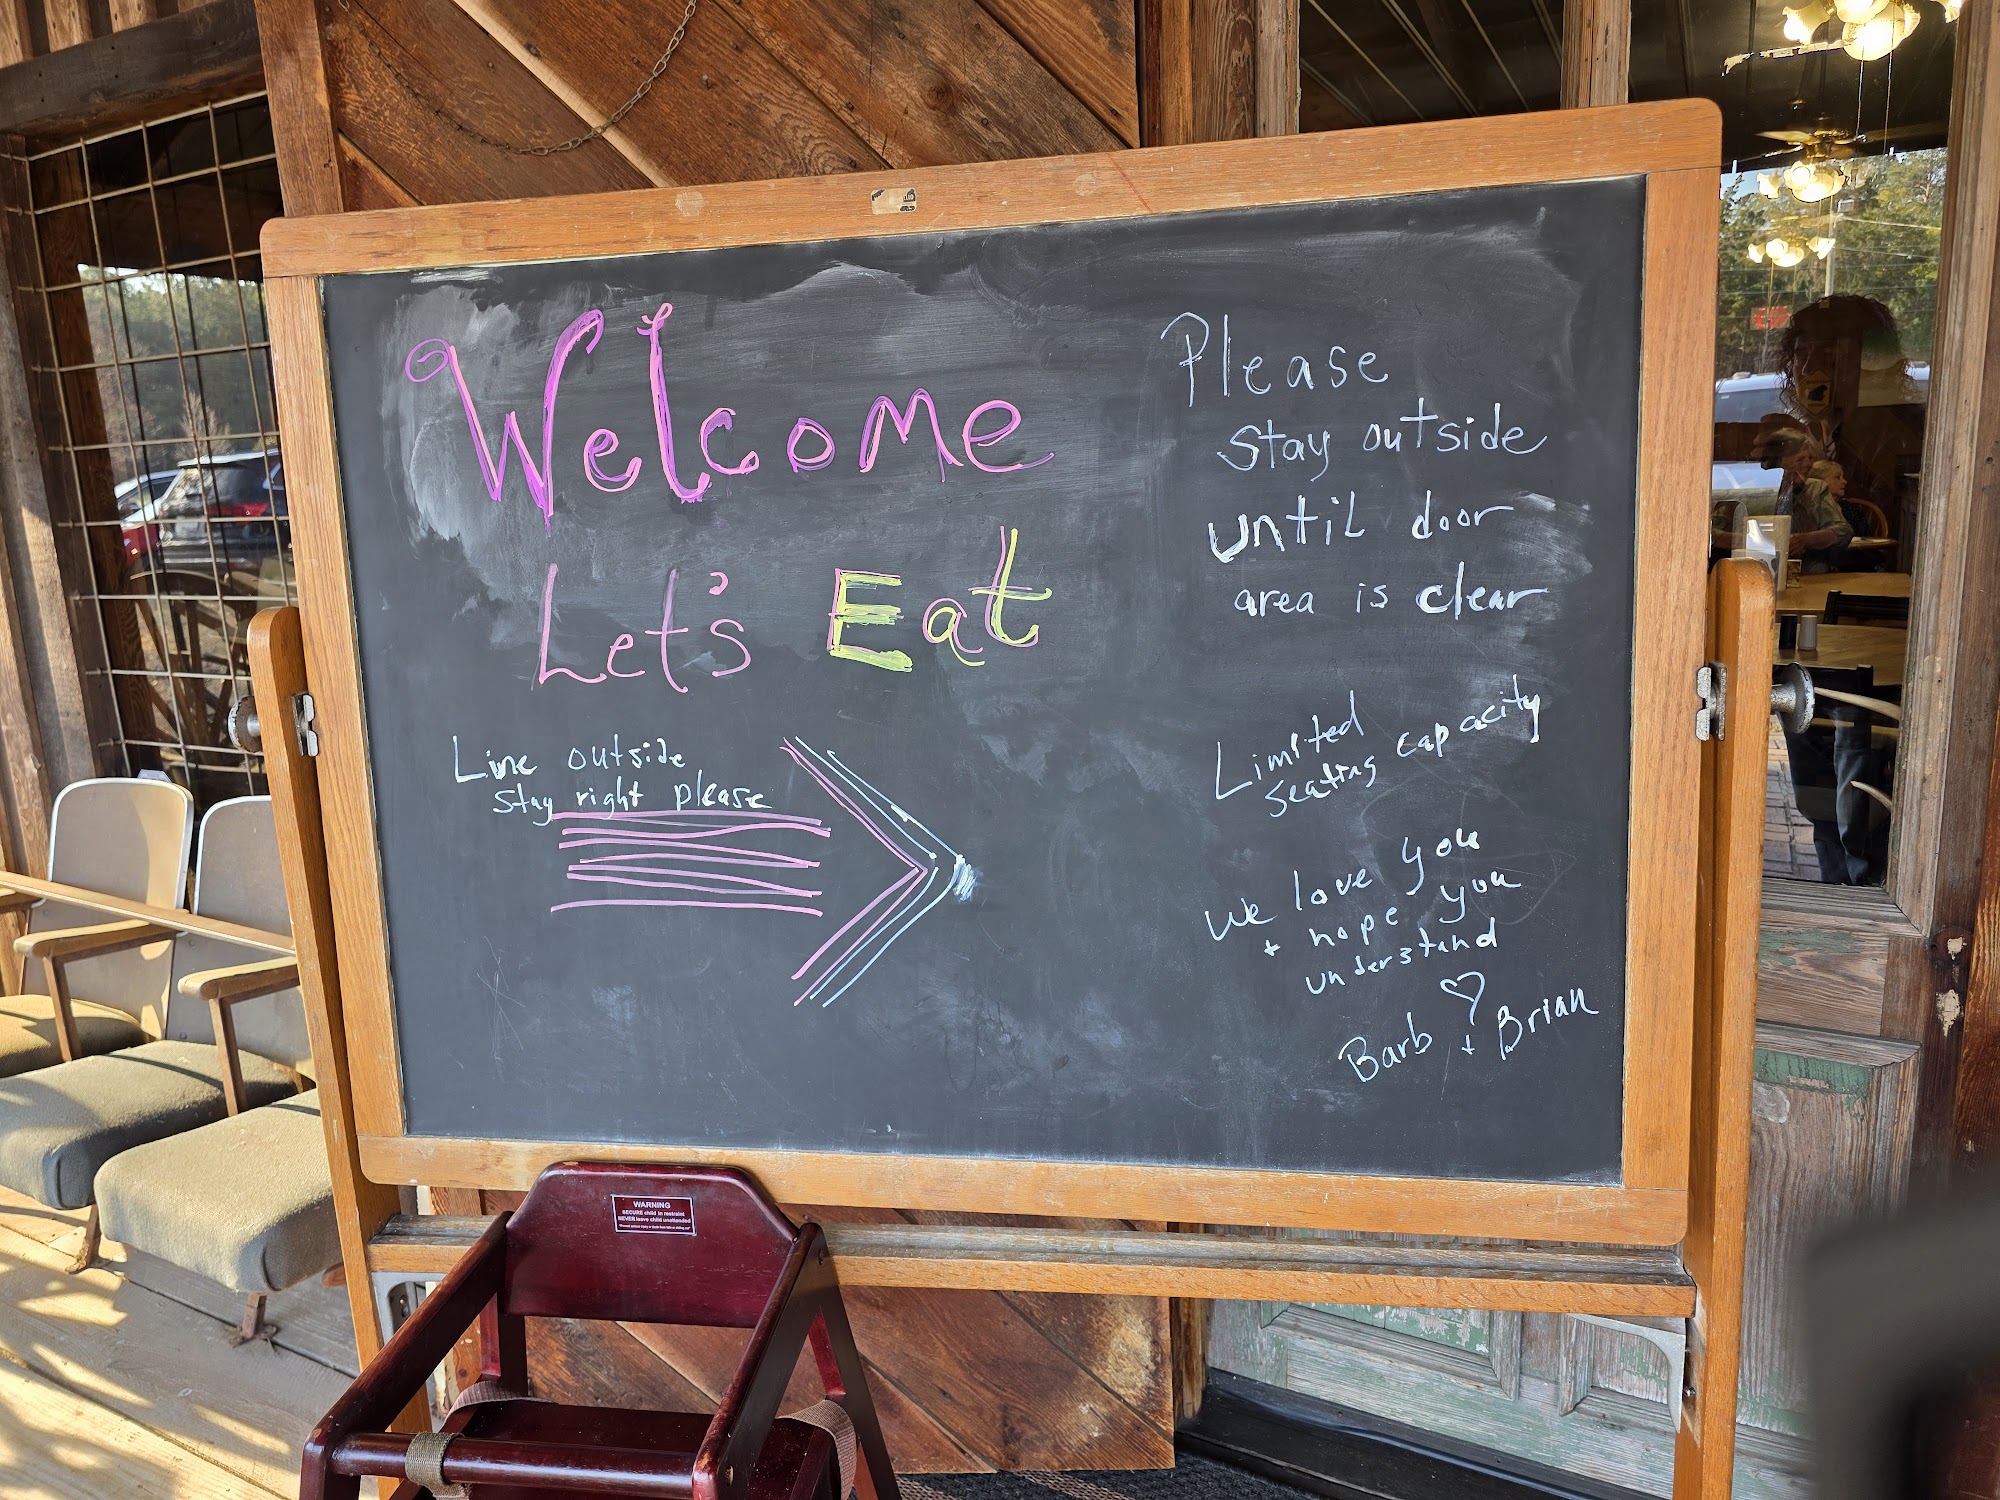 Welcome
Let's Eat
Line outside
Stay right please
Please
Stay outside
until door
area is clear
Limited
seating capacity
We love you
+ hope you
understand
Barb + Brian
WARNING
SECURE child in restraint
NEVER leave child unattended